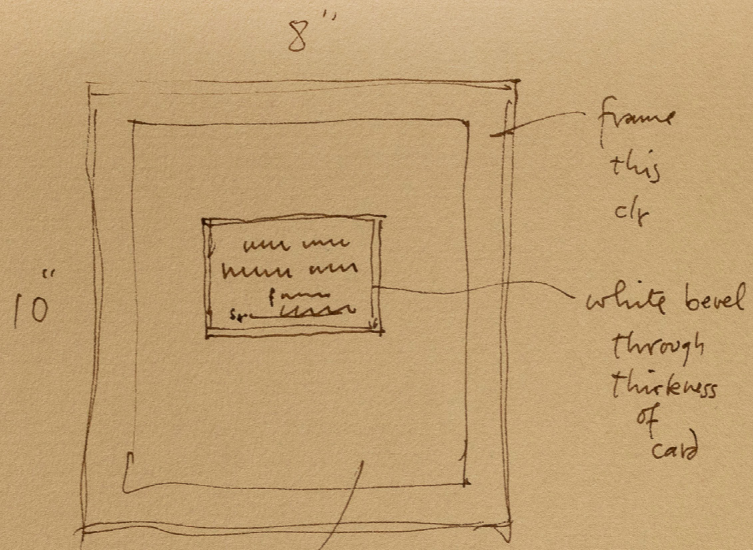 8"
10"
frame
this
clr
white bevel
through
thickness
of
card